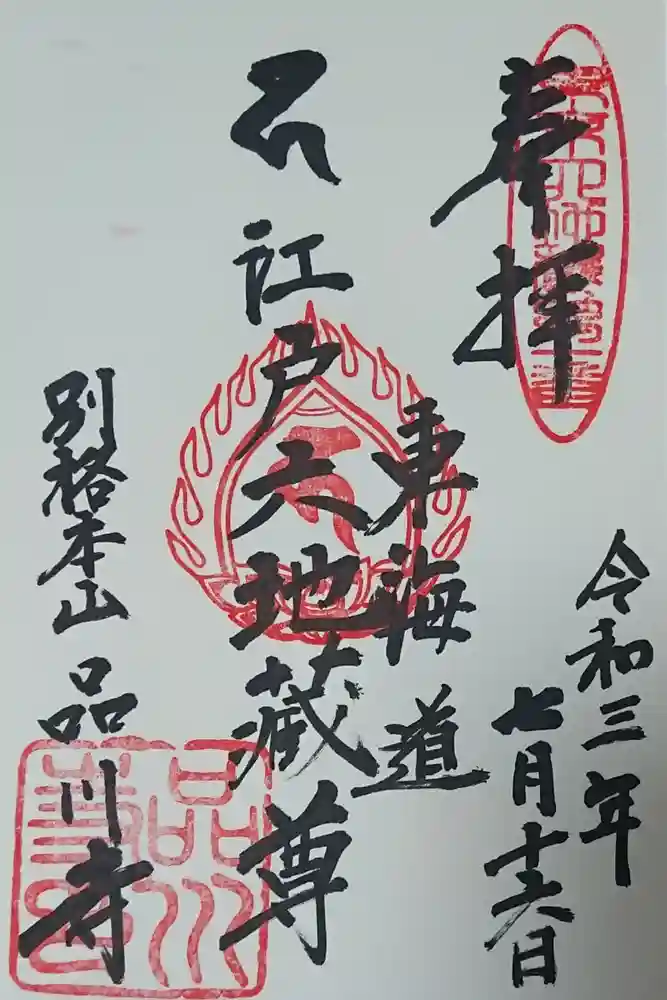 奉拝
令和三年
七月十六日
東海道
江戸六地蔵尊
別格本山 品川寺